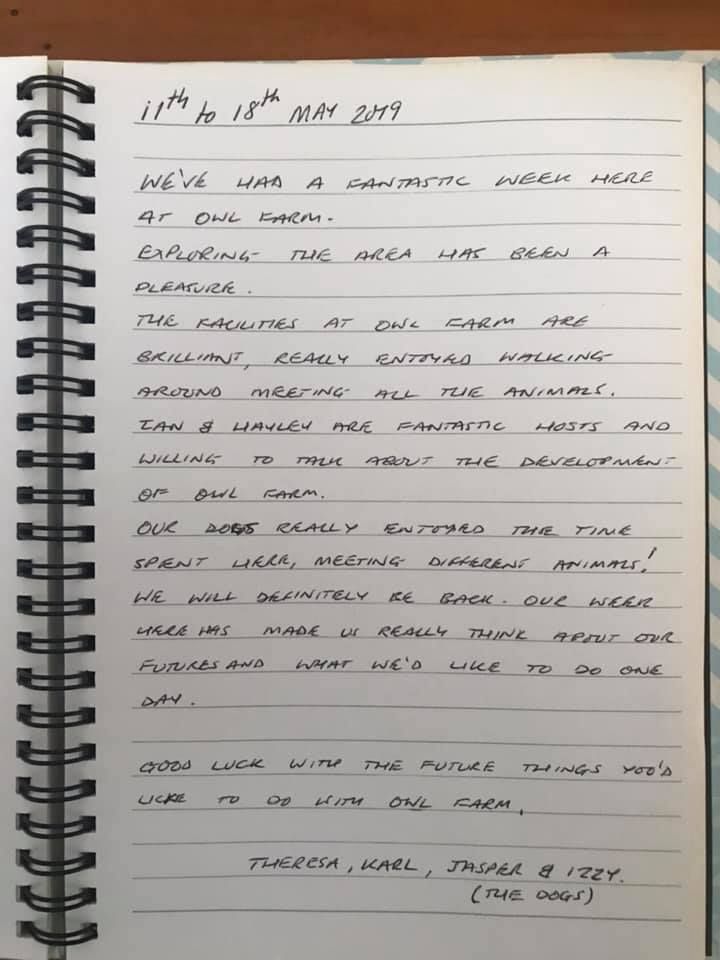 11th to 18th MAY 2019
WE'VE HAD A FANTASTIC WEEK HERE
AT OWL FARM.
EXPLORING THE AREA HAS BEEN A
PLEASURE.
THE FACILITIES AT OWL FARM ARE
BRILLIANT, REALLY ENJOYED WALKING
AROUND MEETING ALL THE ANIMALS.
IAN & HAYLEY ARE FANTASTIC HOSTS AND
WILLING TO TALK ABOUT THE DEVELOPMENT
OF OWL FARM.
OUR DOGS REALLY ENJOYED THE TIME
SPENT HERE, MEETING DIFFERENT ANIMALS!
WE WILL DEFINITELY BE BACK. OUR WEEK
HERE HAS MADE US REALLY THINK ABOUT OUR
FUTURES AND WHAT WE'D LIKE TO DO ONE
DAY.
GOOD LUCK WITH THE FUTURE THINGS YOU'D
LICKE TO DO WITH OWL FARM,
THERESA, KARL, JASPER & IZZY.
(THE DOGS)